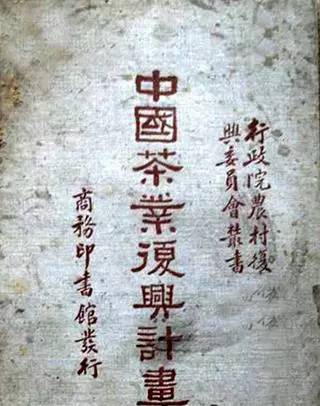 行政院農村復
興委員會叢書
中國茶業復興計畫
商務印書館發行